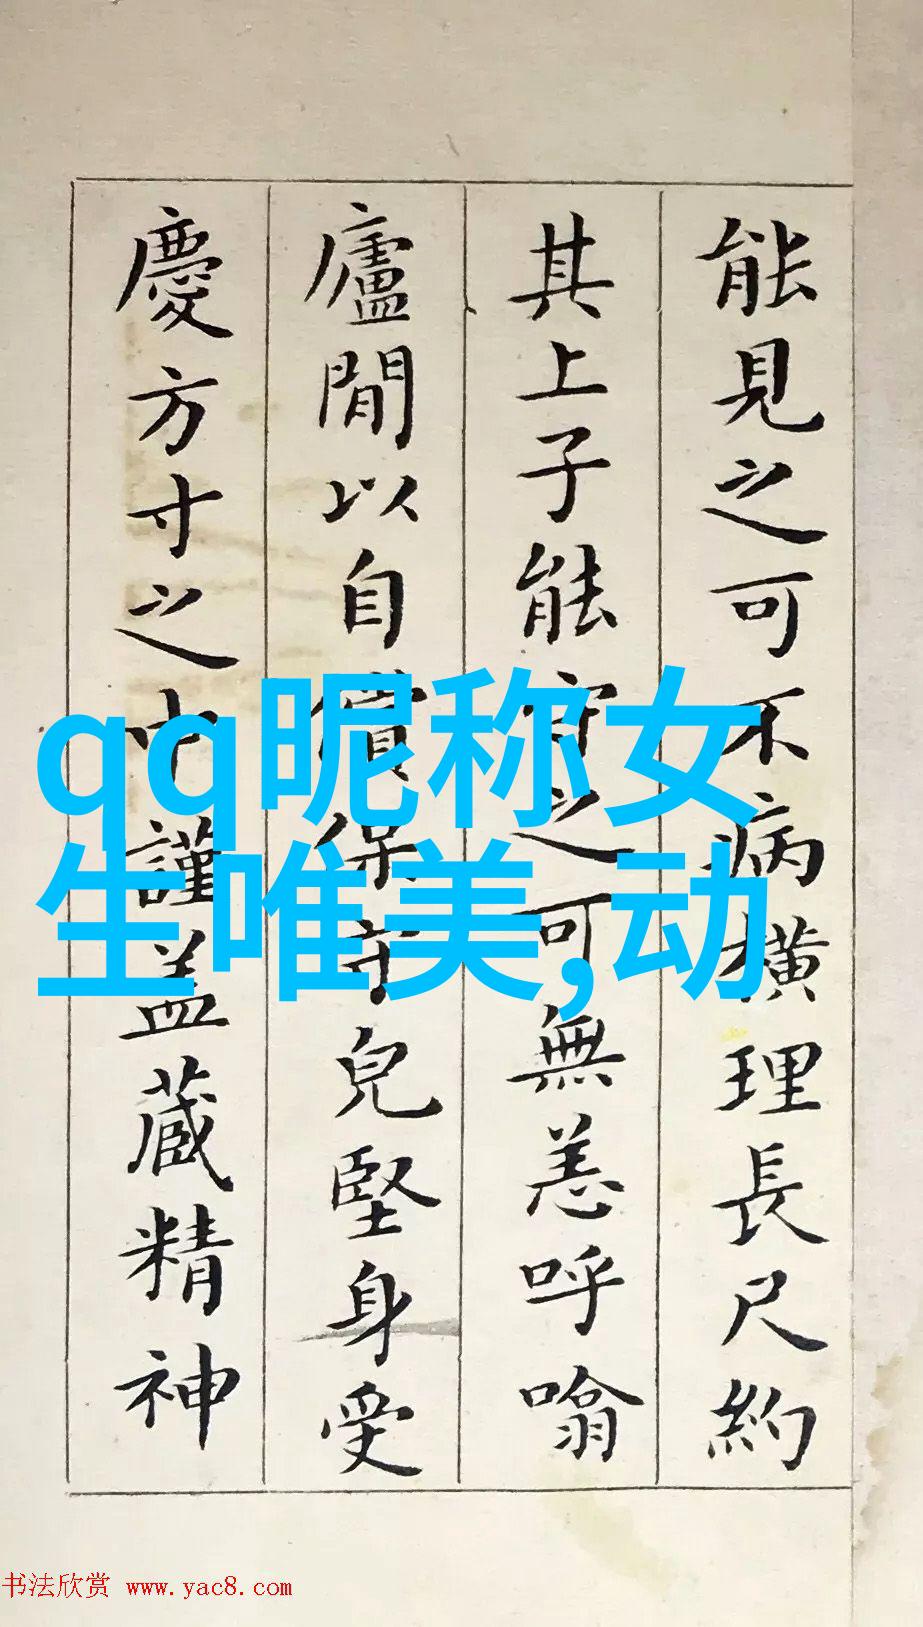 能見之可不病橫理長尺約
其上子能守之可無恙呼噏
廬閒以自償保守皃堅身受
慶方寸之中謹盖蔵精神
qq昵称女
生唯美,动
书法欣赏 www.yac8.com